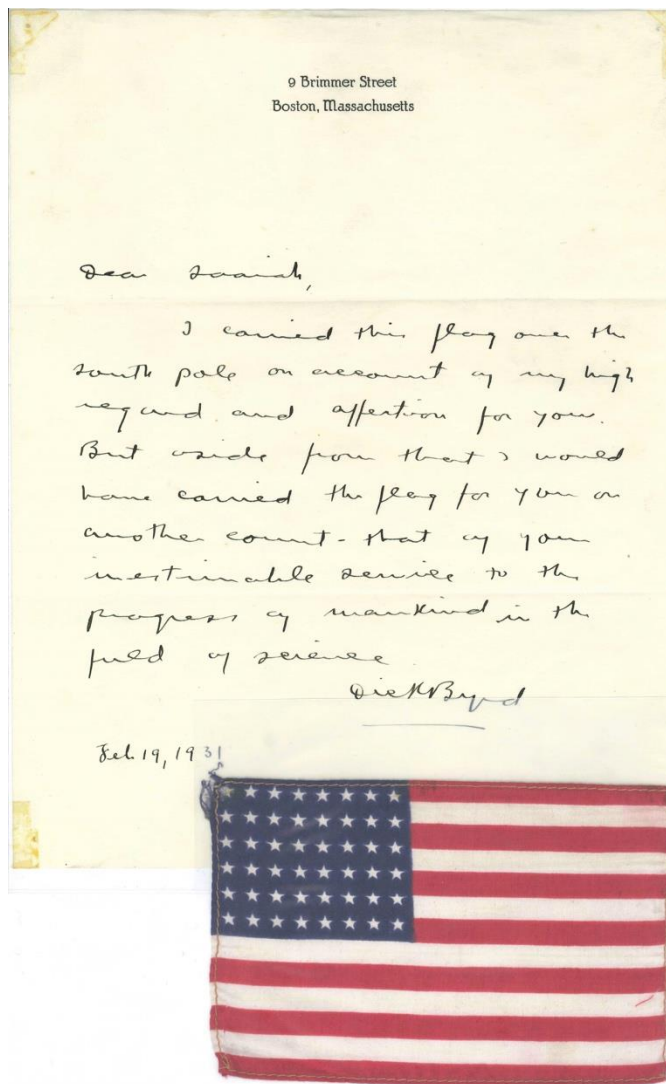 9 Brimmer Street
Boston, Massachusetts
Dear Isaiah,
I carried this flag over the
south pole on account of my high
regard and affection for you.
But aside from that I would
have carried the flag for you on
another count - that of your
inestimable service to the
progress of mankind in the
field of science
Dick Byrd
Feb. 19, 1931